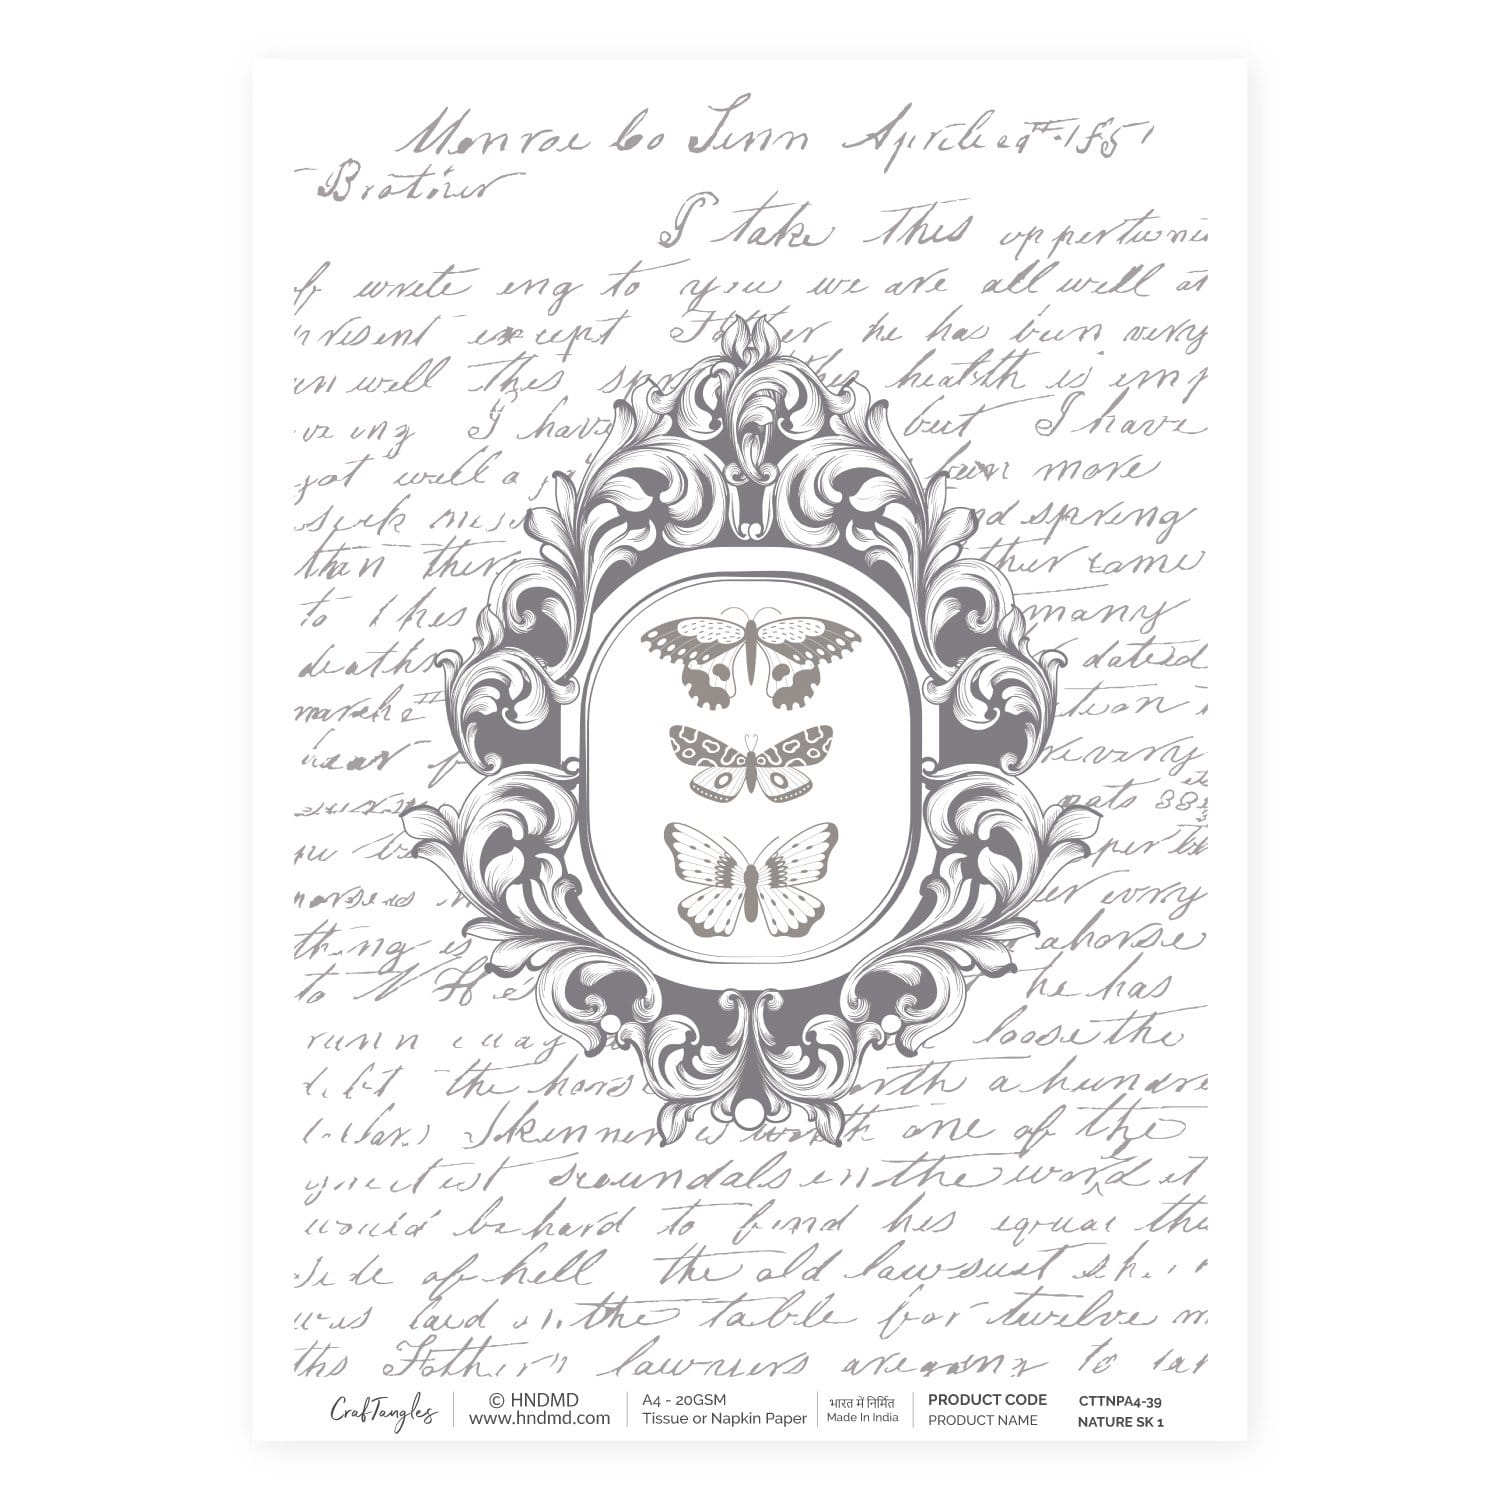 Monroe Co Tenn April 1851
Brother
I take this opportuni
of writeing to you we are all well at
present except Father he has been very
un well this his health is imp
I have but I have
got well a been more
seek and spreng
than ther ther came
to this many
deaths dated
marche
hear
nats
per
very
thing is a horse
to he has
runn away loose the
the horse worth a hundre
Skinner is worth one of the
scoundals in the world it
would be hard to find his equal this
side of hell the old lawsuit
was laid in the table for twelve m
ths Father lawyers are
CrafTangles
© HNDMD
www.hndmd.com
A4 - 20GSM
Tissue or Napkin Paper
भारत में निर्मित
Made In India
PRODUCT CODE CTTNPA4-39
PRODUCT NAME NATURE SK 1